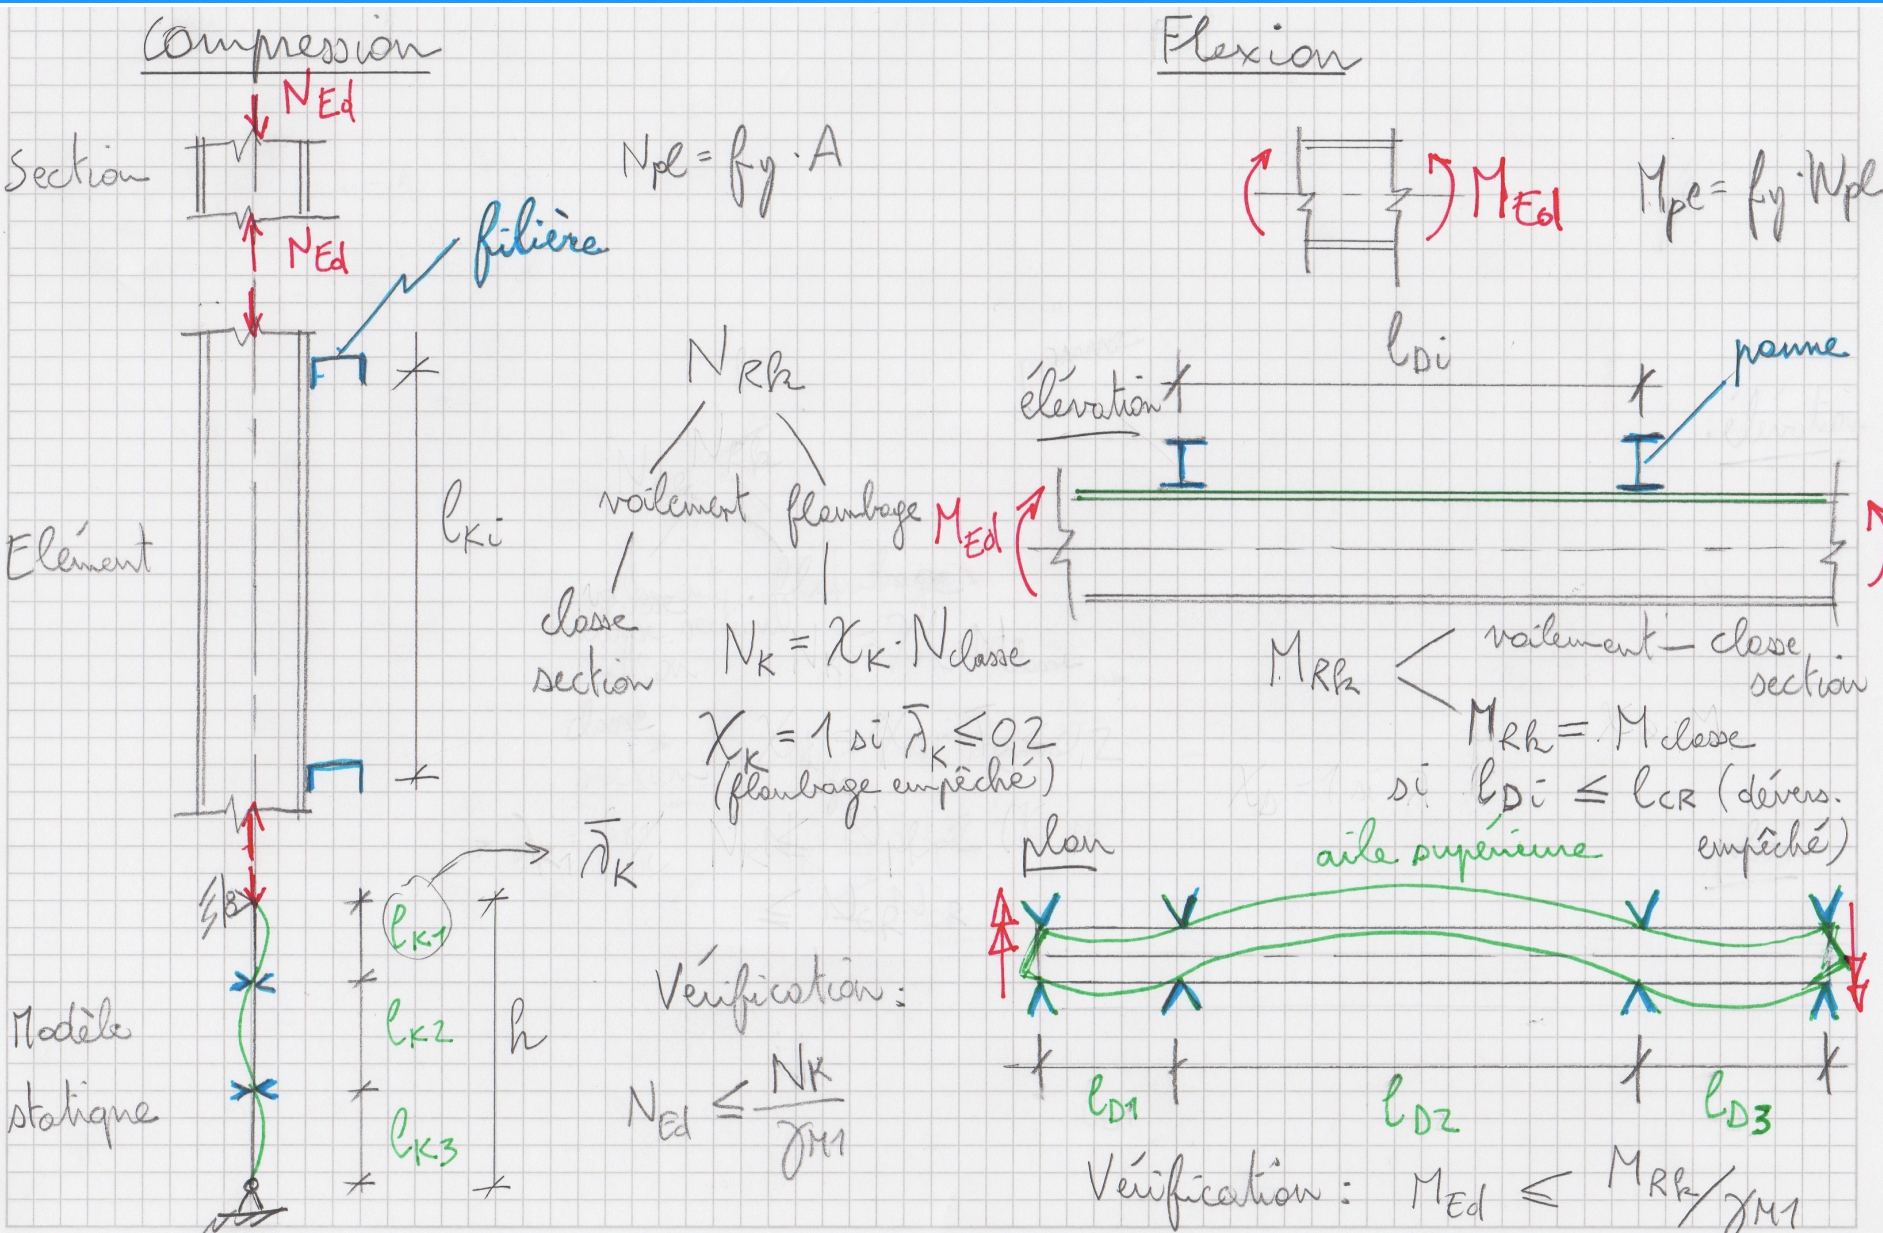 Compression
N_Ed
Section
N_pl = f_y · A
N_Ed
filière
N_Rk
voilement flambage
l_Ki
Elément
classe
section
N_K = χ_K · N_classe
χ_K = 1 si λ̄_K ≤ 0,2
(flambage empêché)
l_K1
λ̄_K
Modèle
statique
l_K2
h
l_K3
Vérification :
N_Ed ≤ N_K / γ_M1
Flexion
M_Ed
M_pl = f_y · W_pl
l_Di
panne
élévation
M_Ed
M_Rk
voilement – classe
section
M_Rk = M_classe
si l_Di ≤ l_CR (dévers.
empêché)
plan
aile supérieure
l_D1 l_D2 l_D3
Vérification : M_Ed ≤ M_Rk / γ_M1